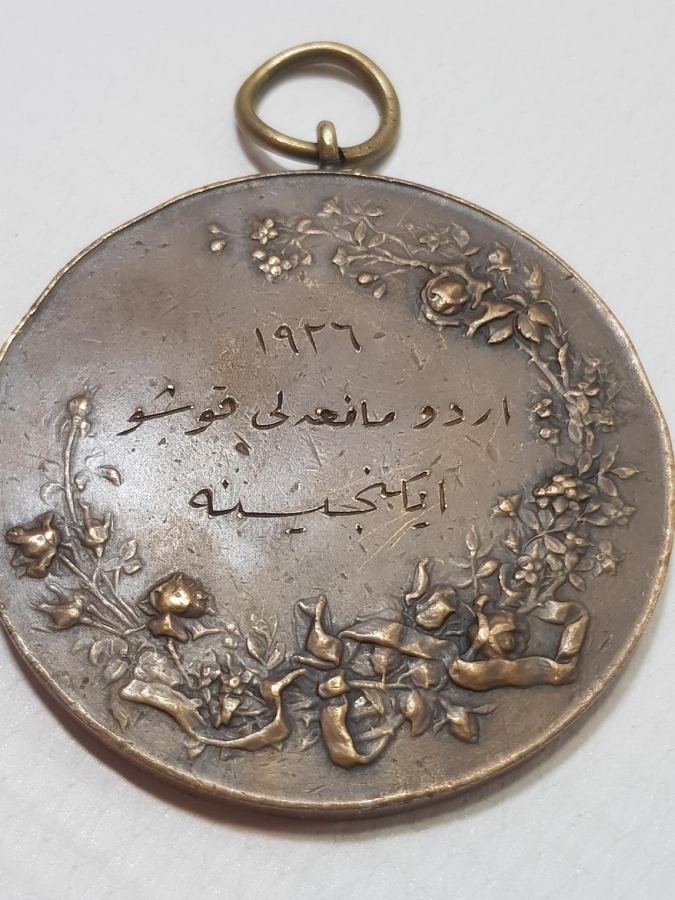 ١٩٢٦
اردو مانعه لی قوشو
ایکنجیسینه